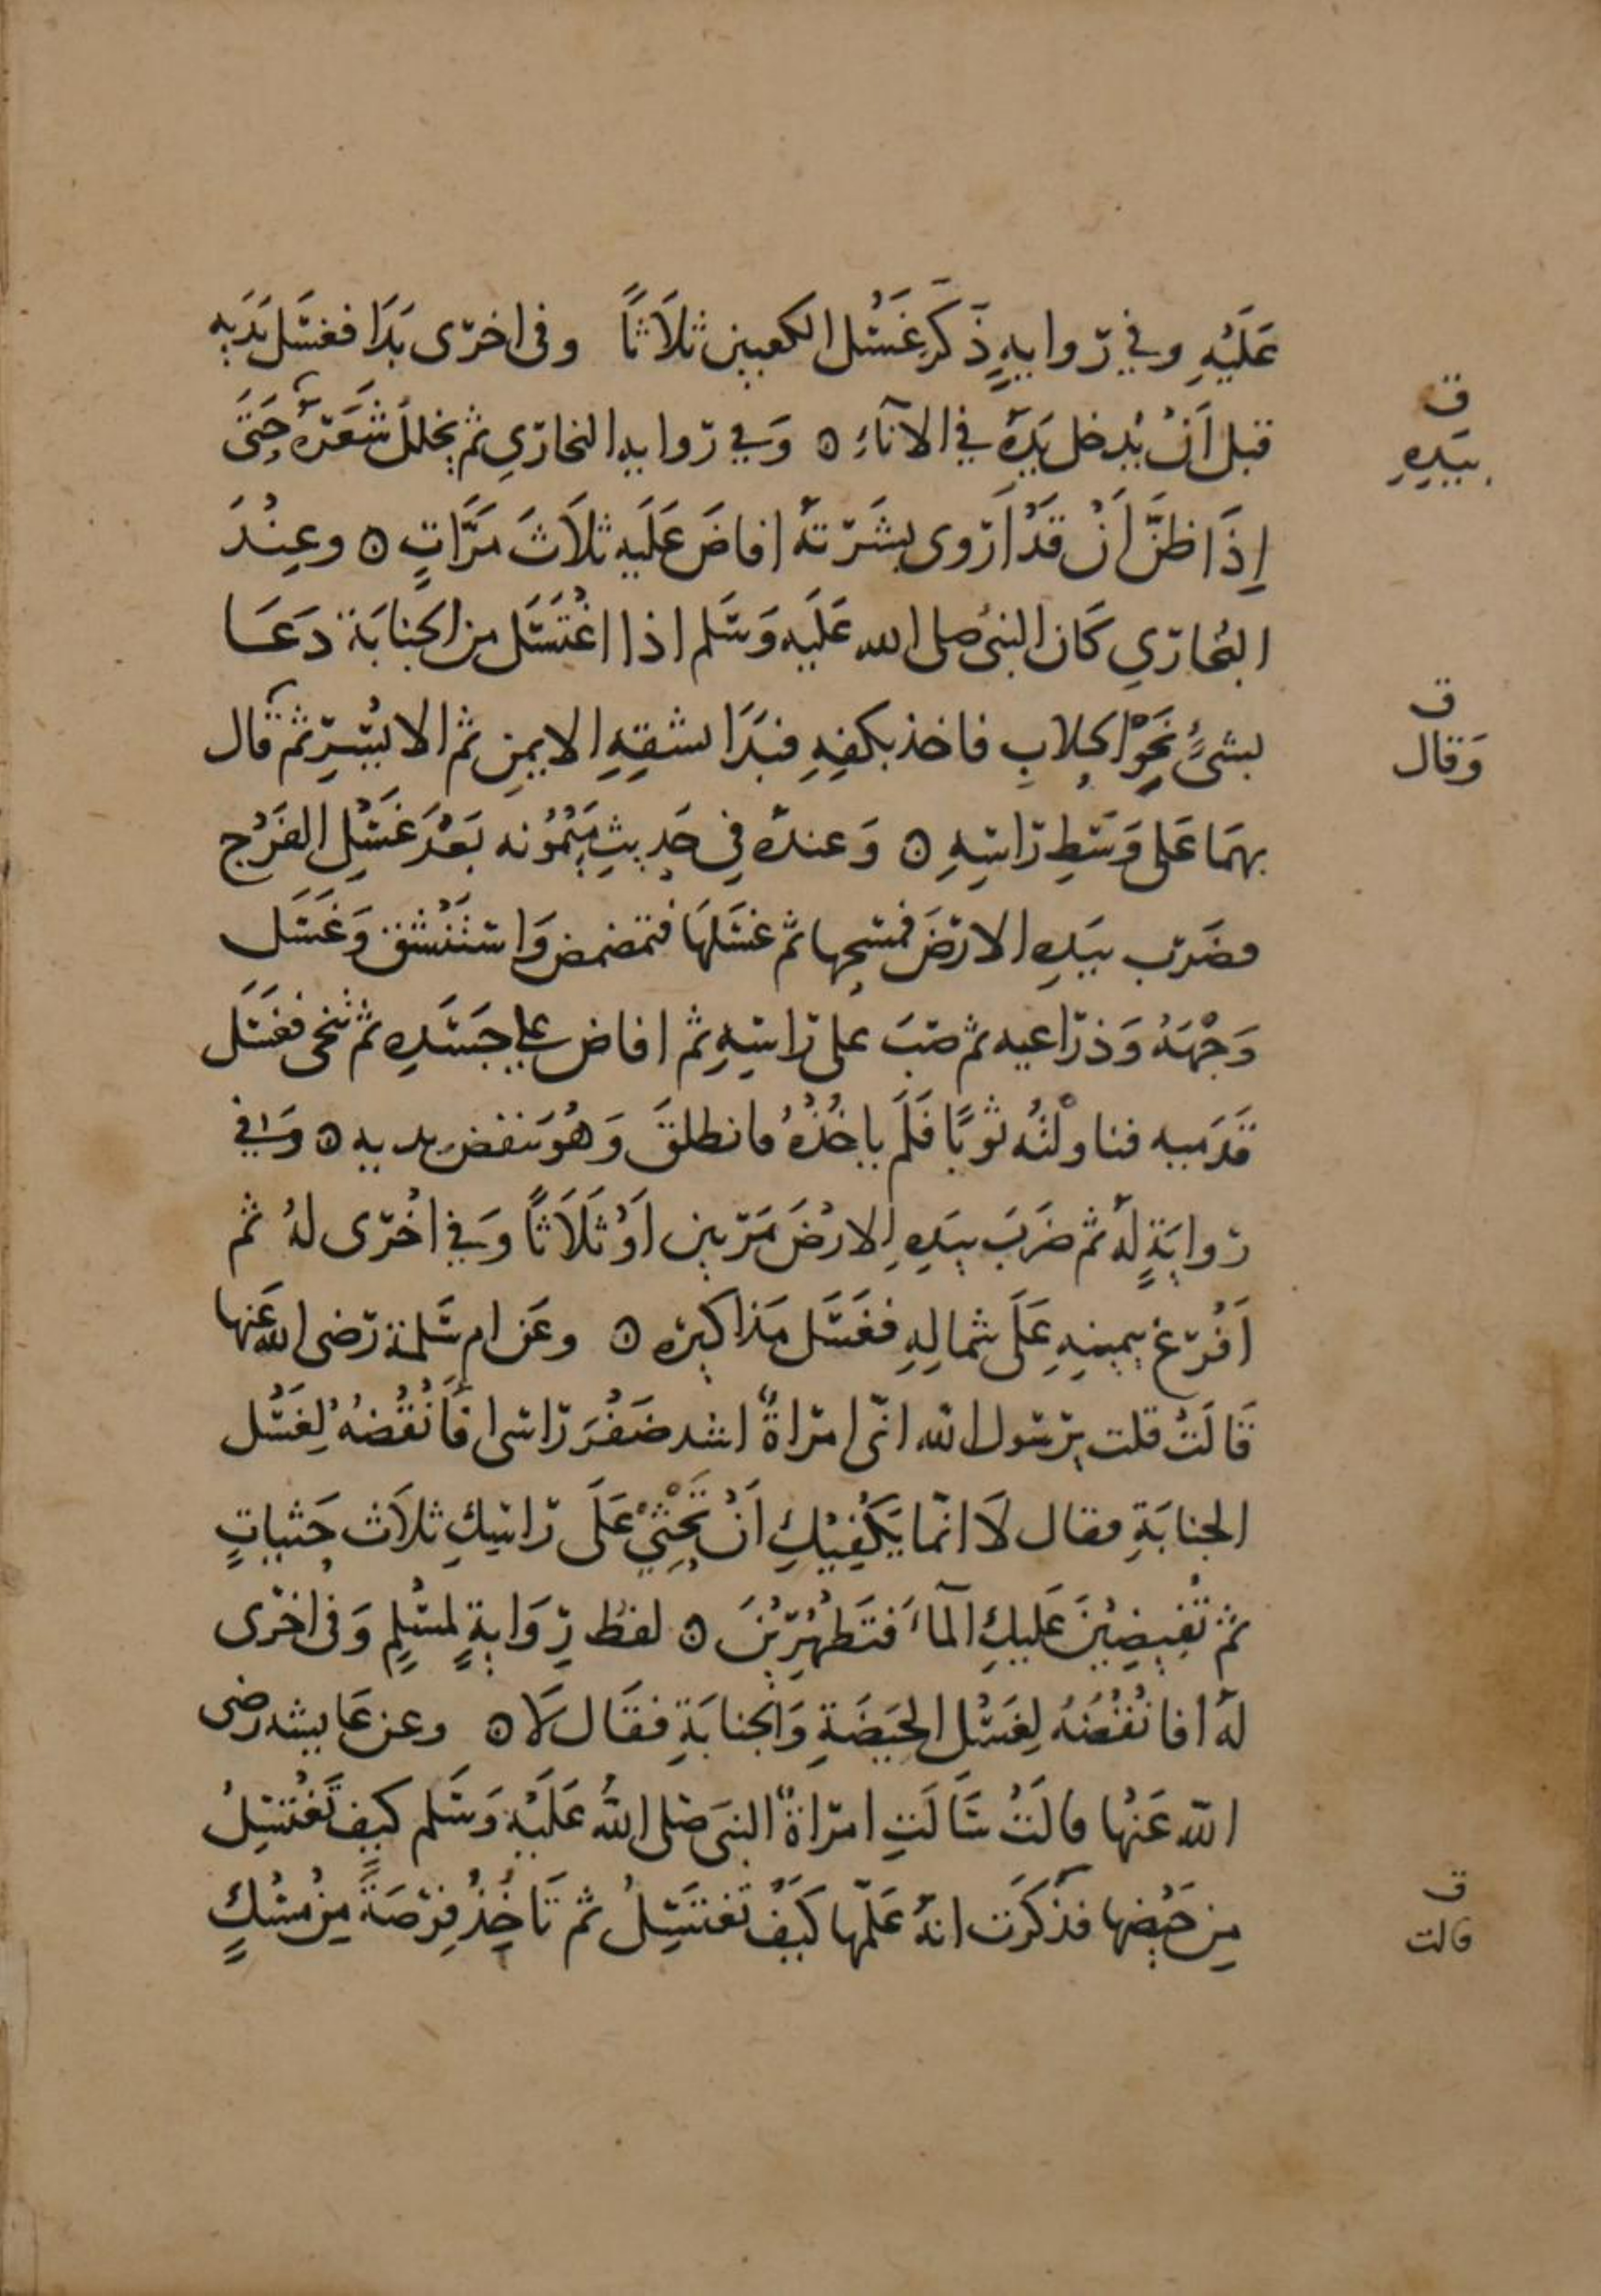 عَلَيْهِ وفي رواية ذَكَر غَسْل الكعبين ثلاثًا وفى اخرى بَدَا فغسَل يَدَيه
قبل اَنْ يُدخل يَدَهُ في الانآءِ ۞ وَفي رواية البخاري ثم يخلل شَعَرَهُ حَتَّى
اِذَا ظنَّ اَنْ قَدْ اَروى بشَرتهُ افاضَ عَلَيه ثلاَثَ مَرَّاتٍ ۞ وعِنْدَ
البُخاري كَان النبى صلى الله عَلَيه وَسَلم اذا اغْتَسَل من الجنابَة دَعَا
بشىءٍ نَحْوِ الحِلابِ فاخذ بكفِهِ فبَدَا بشقِهِ الايمنِ ثم الايْسَرِ ثم قال
بهمَا عَلى وَسَطِ رَاسِهِ ۞ وَعندهُ فِي حَديثِ مَيْمُونه بَعْدَ غَسْلِ الفَرْج
فضَرب بيَدِهِ الارضَ فمسَحها ثم غسَلهَا فتمضمض وَاستَنْشَق وَغَسَل
وَجْهَهُ وَذراعيه ثم صَبَ على رَاسِهِ ثم افاض على جَسَدِهِ ثم تنحى فغَسَل
قَدَميه فناولْتُه ثَوبًا فَلَم ياخُذْهُ فانطلقَ وَهُوَ ينفض يديه ۞ وَفي
روايَةٍ لهُ ثم ضَرَبَ بيَدِهِ الارْضَ مَرتين اَوْ ثَلَاثًا وَفي اخْرى لهُ ثم
اَفْرغ بيمينِهِ عَلَى شمالِهِ فغَسَل مَذاكيره ۞ وعَن ام سَلمة رَضى الله عَنها
قَالَتْ قلت يرسول الله انّى امراةٌ اشد ضَفْرَ رَاسى افَاَنْقُضُهُ لِغَسْل
الجنابَةِ فقال لَا انمّا يَكْفِيْكِ اَنْ تَحْثِيْ عَلَى رَاسِكِ ثلاَث حَثياتٍ
ثم تُفِيضِيْنَ عَليكِ المآءَ فتَطهُرِيْنَ ۞ لفظ رِوَايةٍ لمسْلِمٍ وَفى اخرى
لَهُ افانْقُضُهُ لِغَسْل الحَيْضَةِ وَالجنابَةِ فقَال لَا ۞ وعن عَايشه رضى
الله عَنْها قالَتْ سَالَتِ امرَاةٌ النبىَ صَلى اللهُ عَلَيْهِ وَسَلم كيف تَغْتَسِلُ
مِن حَيْضِها فذكَرَت انهُ عَلّمها كَيْفَ تَغتَسِلُ ثم تَاخُذُ فِرْصَةً مِنْ مِسْكٍ
ق
بيَدِهِ
ق
وَقال
ق
قالت